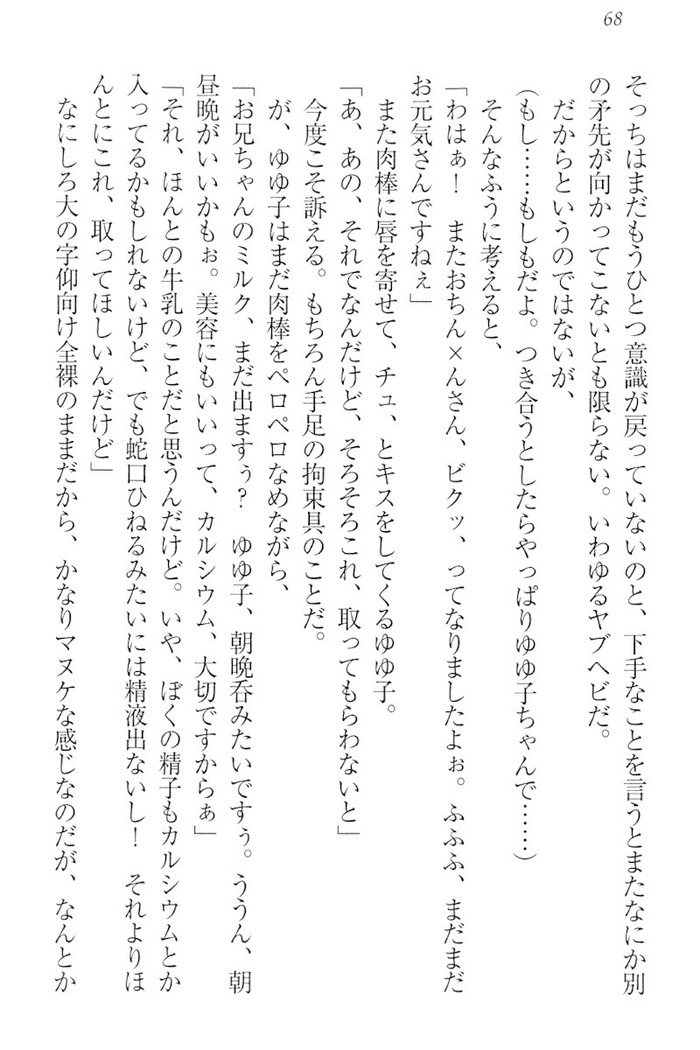 68
そっちはまだもうひとつ意識が戻っていないのと、下手なことを言うとまたなにか別
の矛先が向かってこないとも限らない。いわゆるヤブヘビだ。
だからというのではないが、
(もし……もしもだよ。つき合うとしたらやっぱりゆゆ子ちゃんで……)
そんなふうに考えると、
「わはぁ！　またおちん×んさん、ビクッ、ってなりましたよぉ。ふふふ、まだまだ
お元気さんですねぇ」
また肉棒に唇を寄せて、チュ、とキスをしてくるゆゆ子。
「あ、あの、それでなんだけど、そろそろこれ、取ってもらわないと」
今度こそ訴える。もちろん手足の拘束具のことだ。
が、ゆゆ子はまだ肉棒をペロペロなめながら、
「お兄ちゃんのミルク、まだ出ますぅ？　ゆゆ子、朝晩呑みたいですぅ。ううん、朝
昼晩がいいかもぉ。美容にもいいって、カルシウム、大切ですからぁ」
「それ、ほんとの牛乳のことだと思うんだけど。いや、ぼくの精子もカルシウムとか
入ってるかもしれないけど、でも蛇口ひねるみたいには精液出ないし！　それよりほ
んとにこれ、取ってほしいんだけど」
なにしろ大の字仰向け全裸のままだから、かなりマヌケな感じなのだが、なんとか